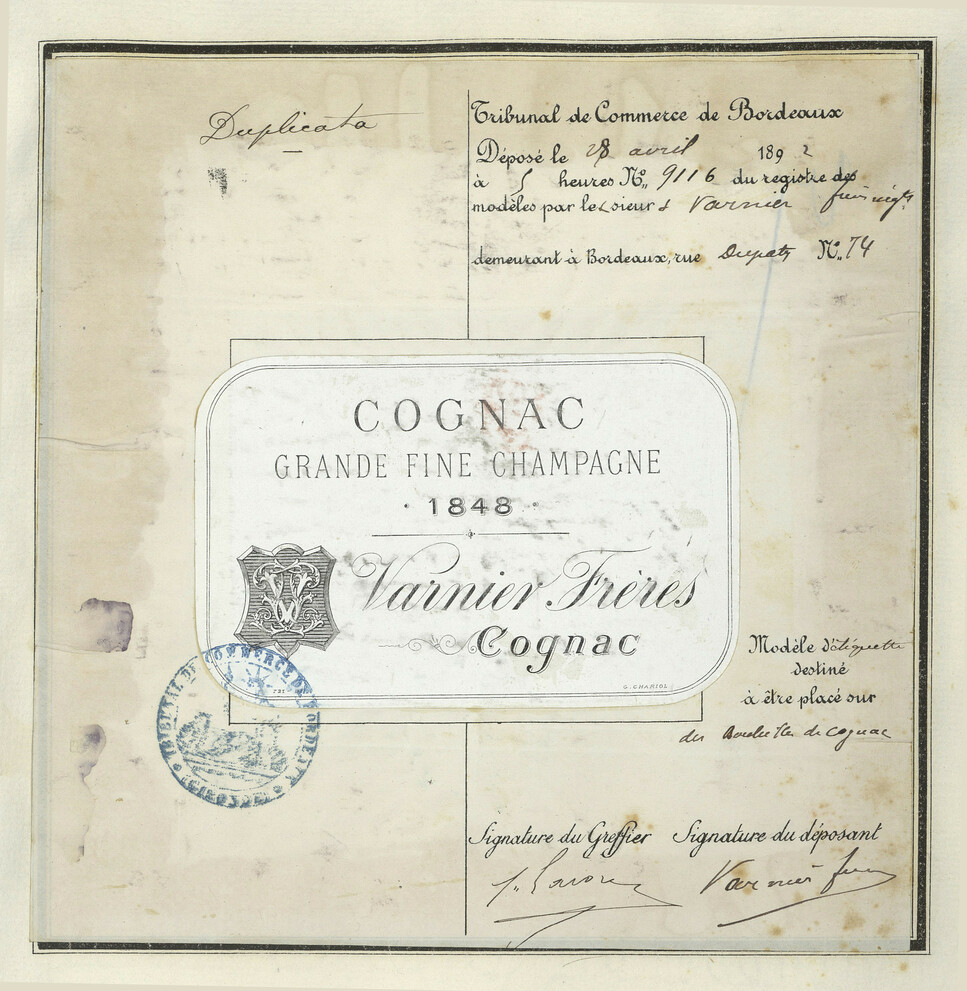 Duplicata
Tribunal de Commerce de Bordeaux
Déposé le 28 avril 1892
à 5 heures No. 9116 du registre des
modèles par les sieurs Varnier
demeurant à Bordeaux, rue Dupaty No. 74
COGNAC
GRANDE FINE CHAMPAGNE
· 1848 ·
Varnier Frères
Cognac
G. CHARIOL
TRIBUNAL DE COMMERCE DE BORDEAUX
(GIRONDE)
Modèle d'étiquette
destiné
à être placé sur
des Bouteilles de cognac
Signature du Greffier Signature du déposant
Varnier